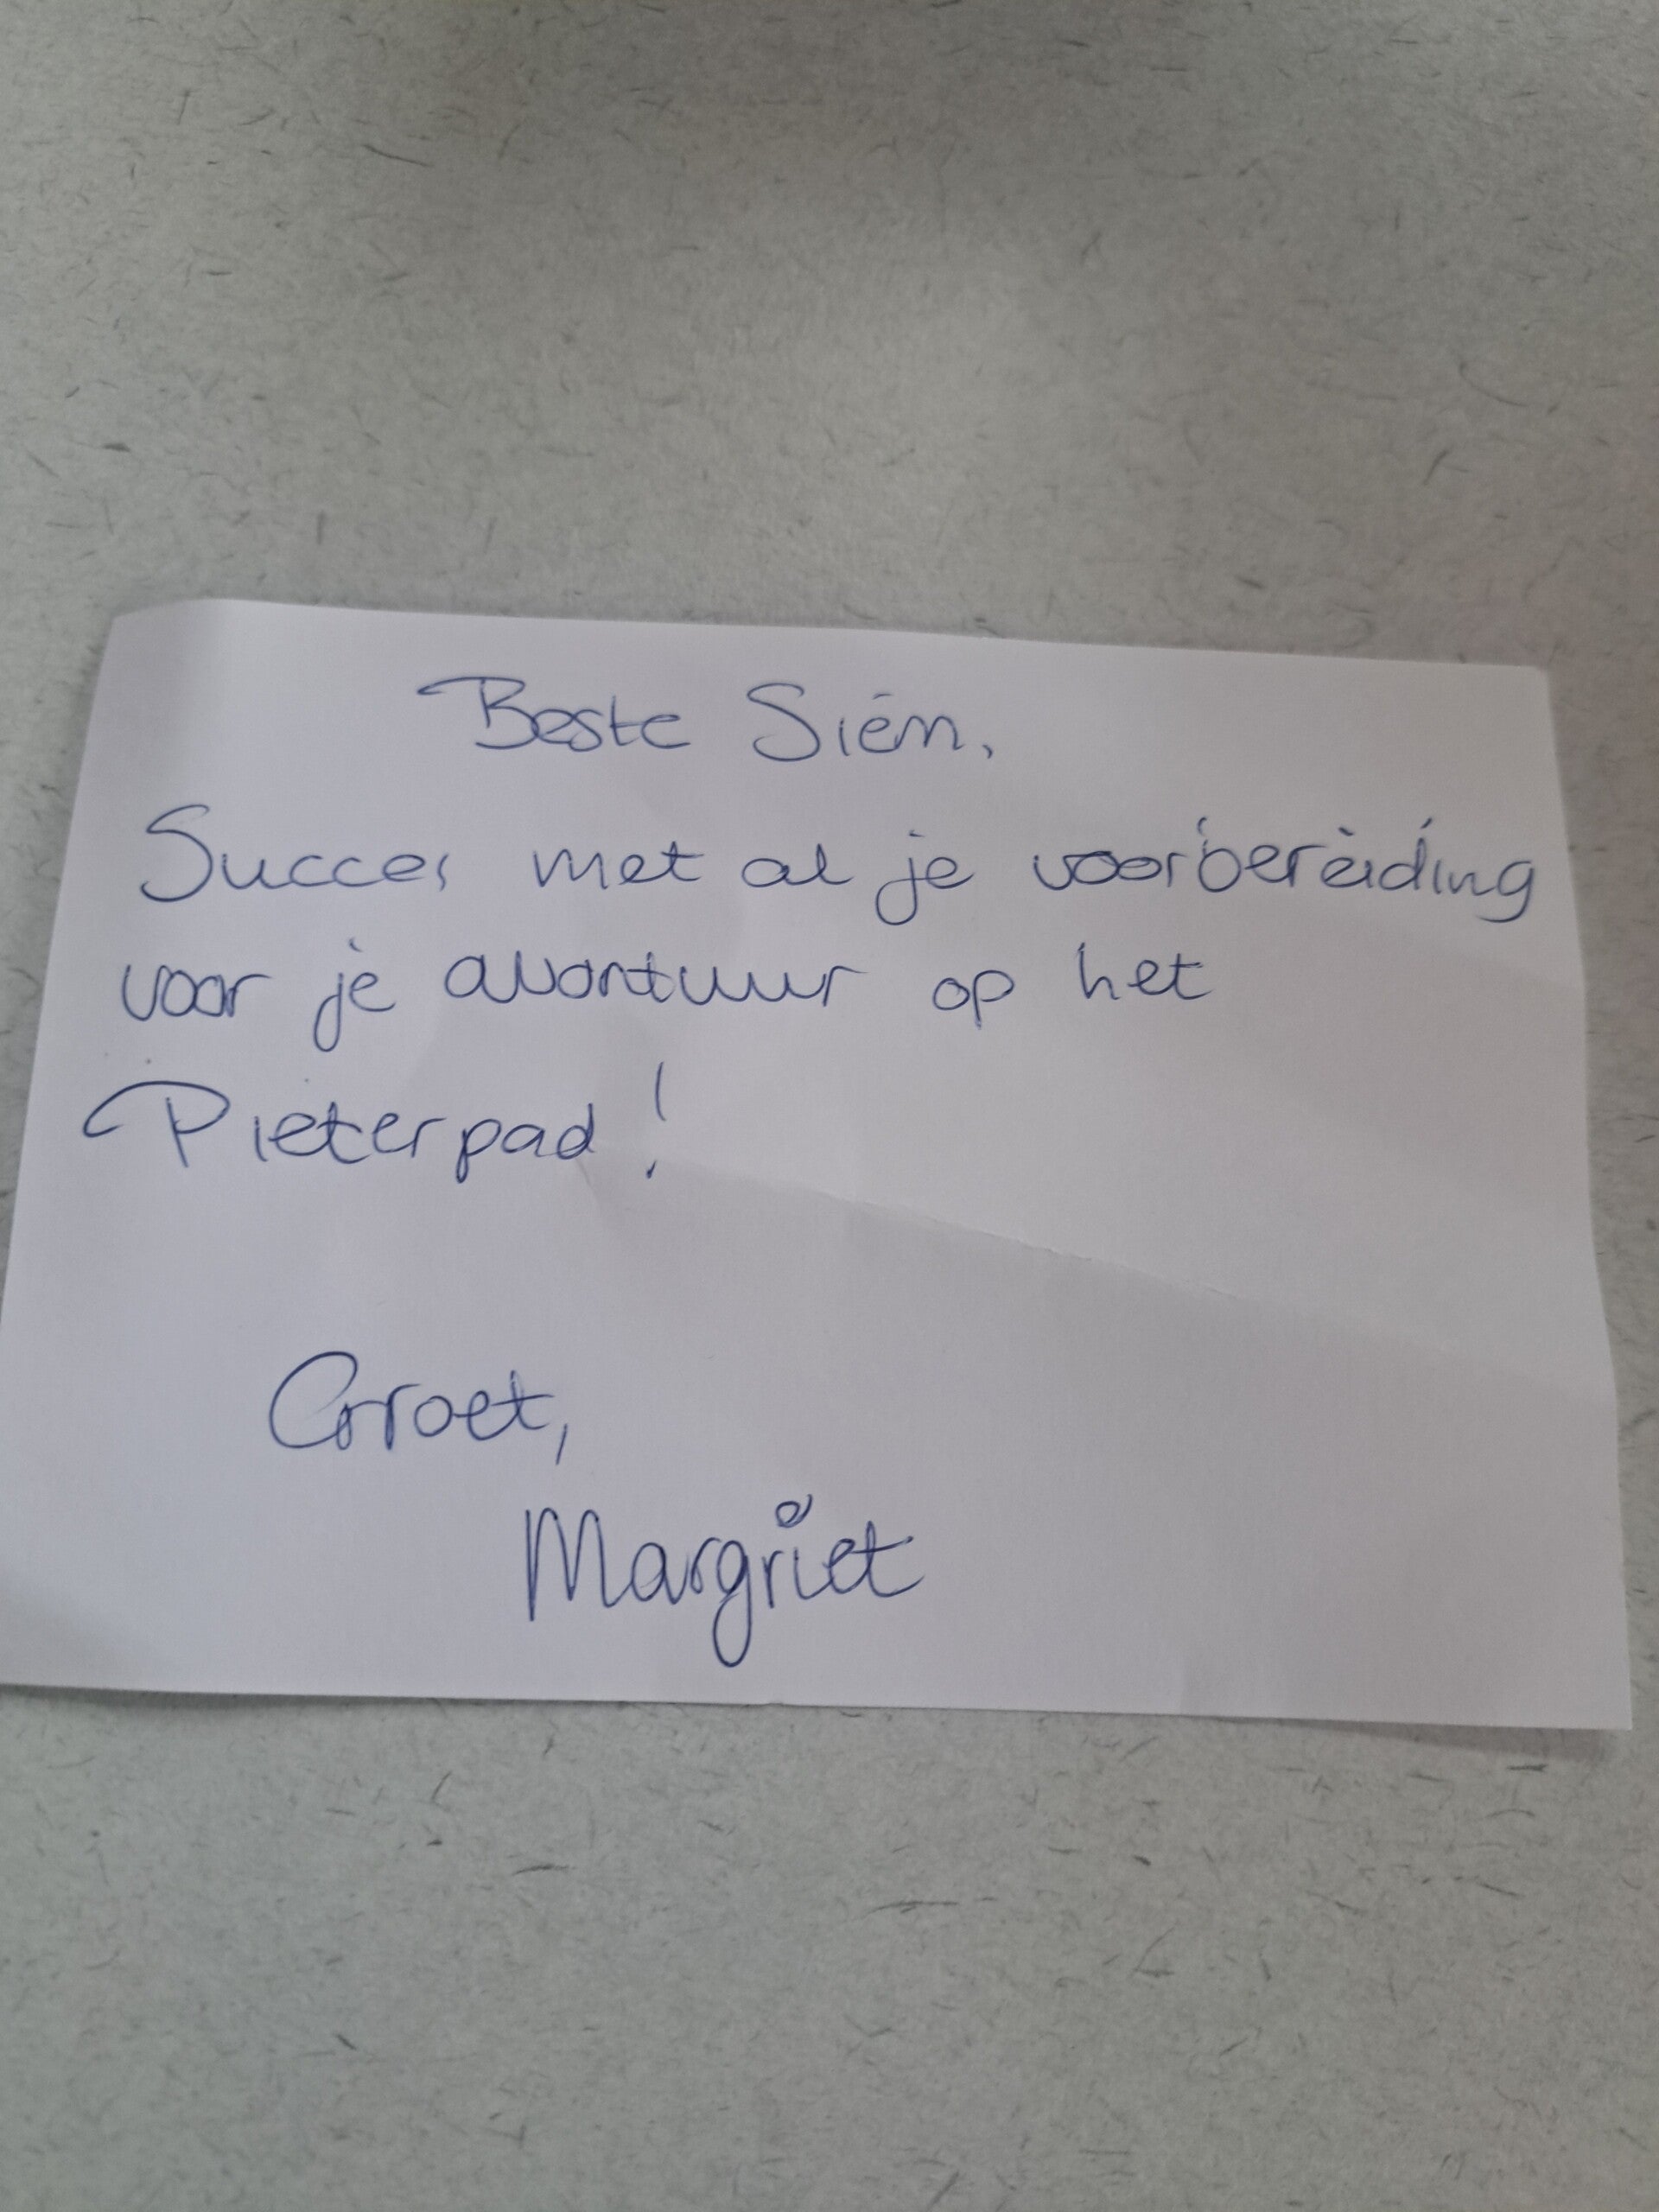 Beste Siem,
Succes met al je voorbereiding
voor je avontuur op het
Pieterpad!
Groet,
Margriet